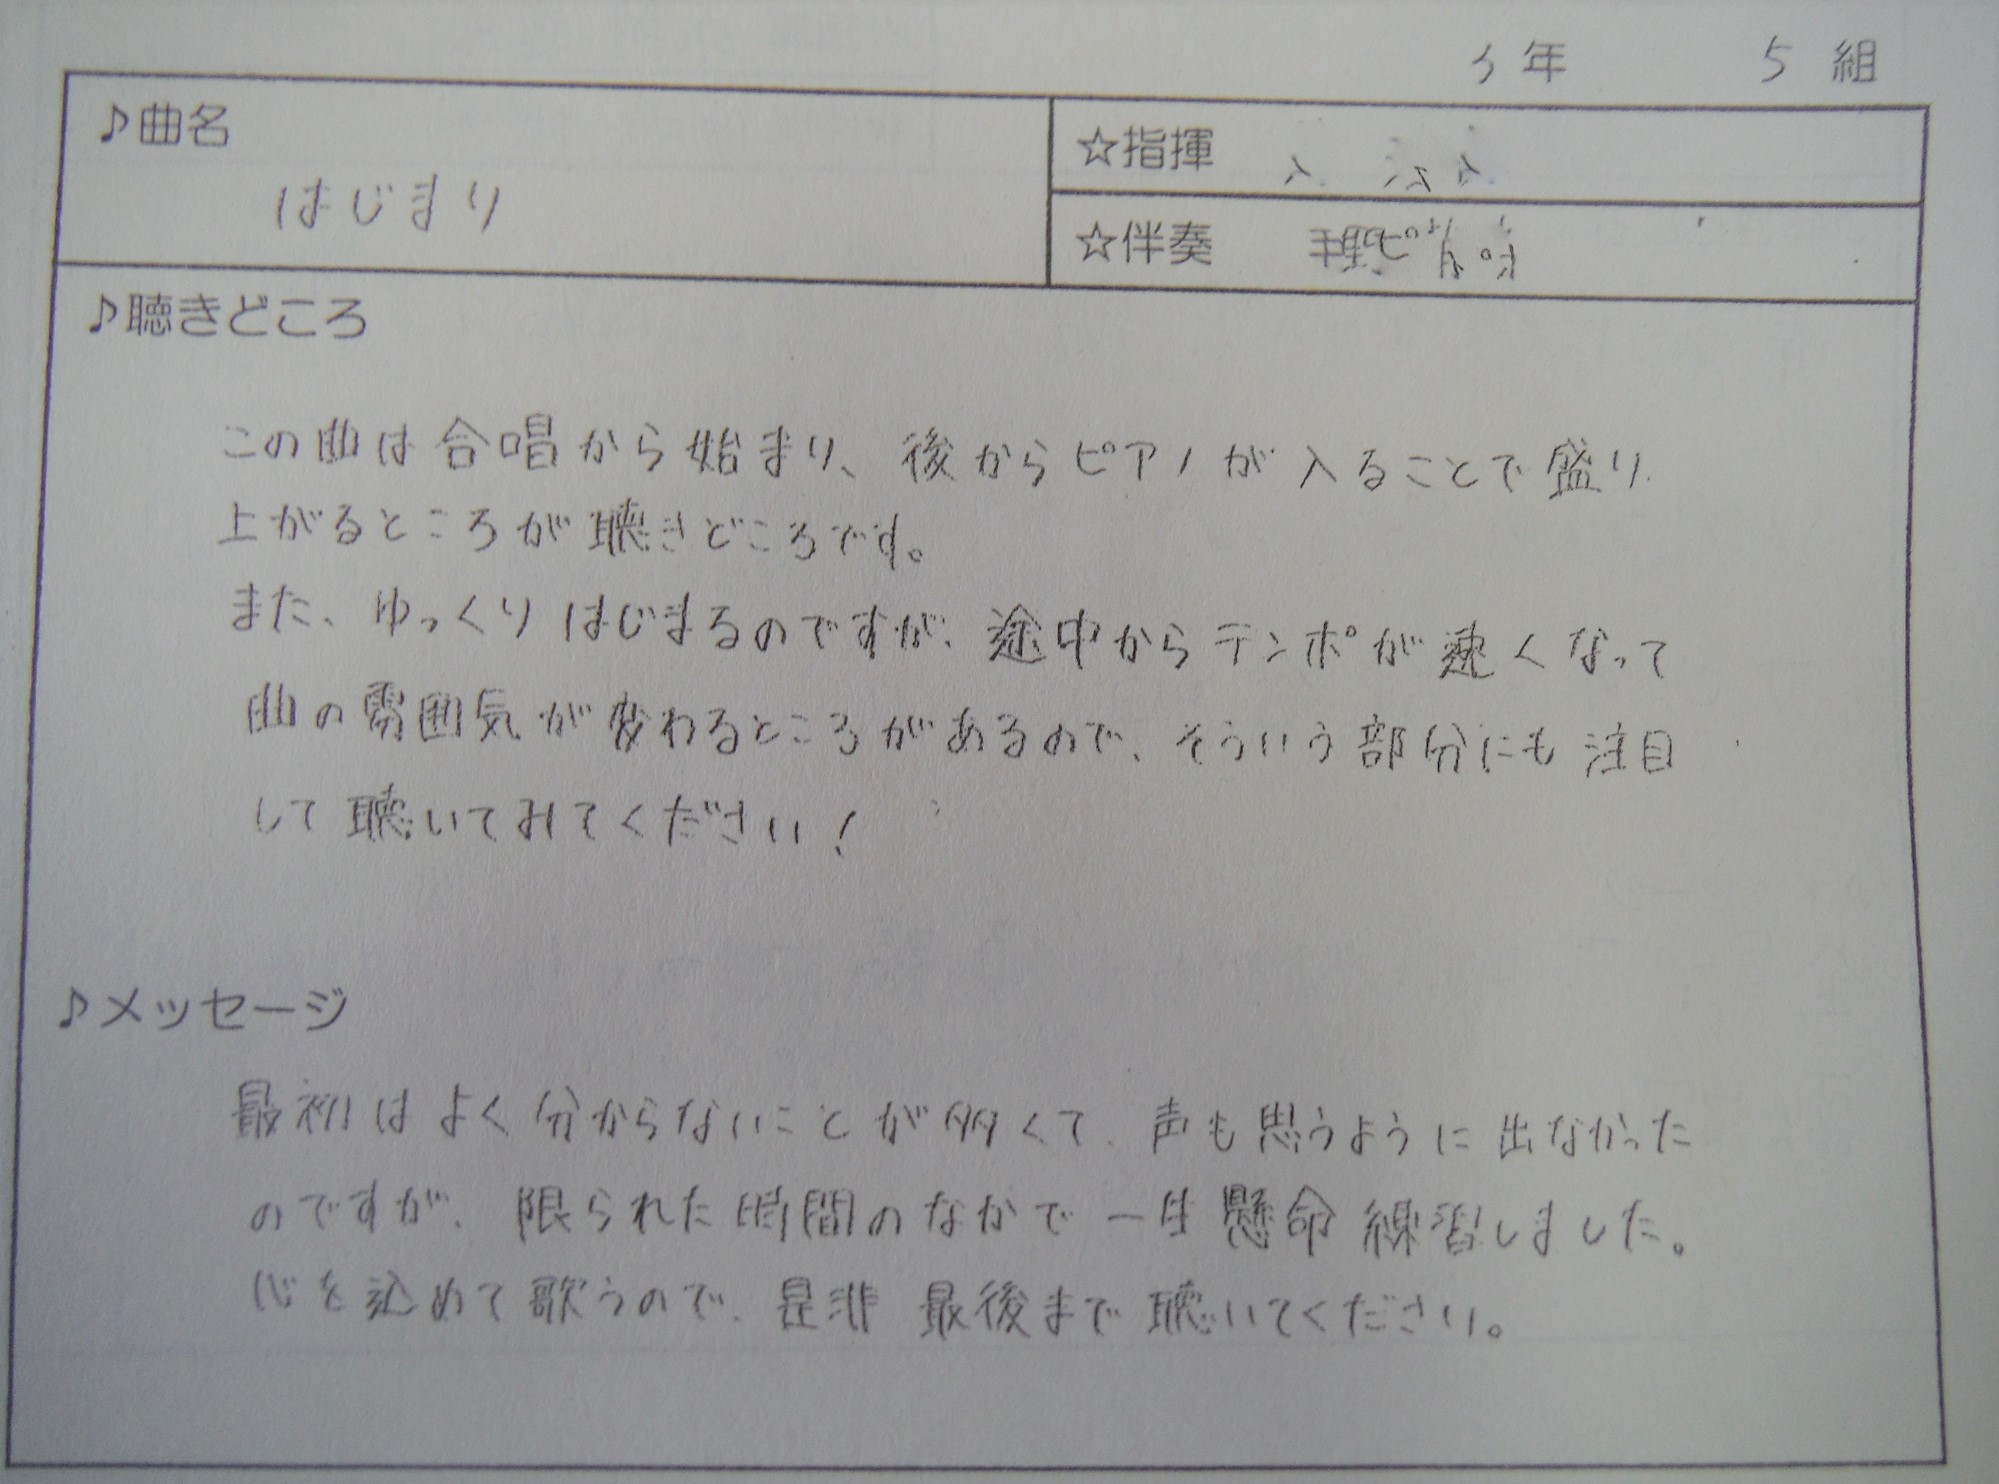 3年 5組
♪曲名
はじまり
☆指揮
☆伴奏
♪聴きどころ
この曲は合唱から始まり、後からピアノが入ることで盛り
上がるところが聴きどころです。
また、ゆっくりはじまるのですが、途中からテンポが速くなって
曲の雰囲気が変わるところがあるので、そういう部分にも注目
して聴いてみてください!
♪メッセージ
最初はよく分からないことが多くて、声も思うように出なかった
のですが、限られた時間のなかで一生懸命練習しました。
心を込めて歌うので、是非最後まで聴いてください。